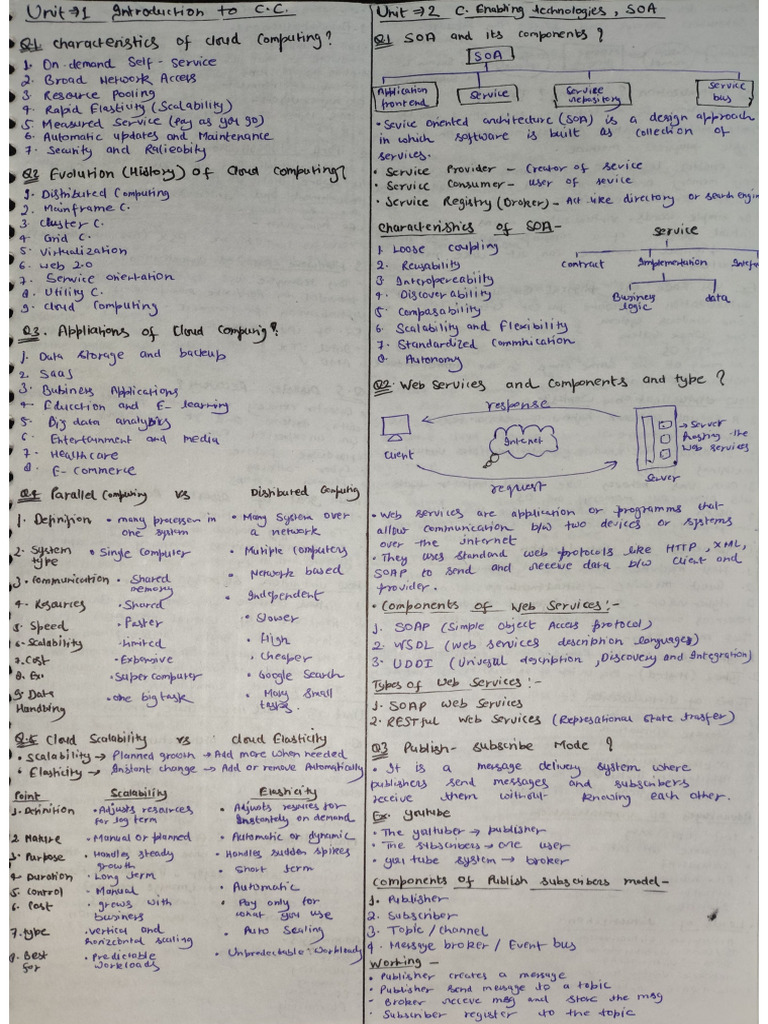 Unit→1 Introduction to C.C.
Q1 Characteristics of Cloud Computing?
1. On-demand Self-Service
2. Broad Network Access
3. Resource Pooling
4. Rapid Elasticity (Scalability)
5. Measured Service (Pay as you go)
6. Automatic updates and Maintenance
7. Security and Ralieobity
Q2 Evolution (History) of Cloud Computing?
1. Distributed Computing
2. Mainframe C.
3. Cluster C.
4. Grid C.
5. Virtualization
6. Web 2.0
7. Service orientation
8. Utility C.
9. Cloud Computing
Q3. Appliations of Cloud Computing?
1. Data Storage and backup
2. SaaS
3. Bubiness Applications
4. Education and E-learning
5. Big data analytics
6. Entertainment and media
7. Healthcare
8. E-Commerce
Q4 Parallel Computing vs Distributed Computing
1. Definition • many processer in one system • Many System over a network
2. System type • Single Computer • Multiple Computers
3. Communication • Shared memory • Network based
4. Resources • Shared • Independent
5. Speed • Faster • Slower
6. Scalability • Limited • High
7. Cost • Expensive • Cheaper
8. Ex • Super computer • Google Search
9. Data Handling • One big task • Many Small tasks.
Q.5 Cloud Scalability vs Cloud Elasticity
• Scalability → Planned growth → Add more when needed
• Elasticity → Instant change → Add or remove Automatically
Point Scalability Elasticity
1. Definition • Adjusts resources for log term • Adjusts requires for Instantly on demand
2 Nature • Manual or planned • Automatic or dynamic
3. Purpose • Handles steady growth • Handles sudden spikes
4. Duration • Long Term • Short term
5 control • Manual • Automatic
6. Cost • grows with business • Pay only for what you use
7. type • vertical and horizontal scaling • Auto Scaling
8. Best for • Predictable workloads • Unpredectable workloads
Unit→2 C. Enabling technologies, SOA
Q1 SOA and its components?
SOA
Application frontend
Service
Service repository
Service bus
• Sevice oriented architecture (SOA) is a design approach
in which software is built as collection of
services.
• Service Provider – Creator of sevice
• Service Consumer – User of sevice
• Service Registry (Broker) – Act like directory or search engin
Characteristics of SOA –
1. Loose coupling
2. Reusability
3 Interopereability
4. Discoverability
5 Compasability
6. Scalability and Flexibility
7. Standardized Commnication
8 Autonomy
Service
Contract
Implementation
Interfa
Business logic
data
Q2. Web Services and Components and type?
response
Client
Internet
→ Server Hosting the Web services
Server
request
• Web services are application or programms that
allow communication b/w two devices or systems
over the internet
• They uses standard web protocols like HTTP, XML,
SOAP to send and receive data b/w Client and
provider.
• Components of Web Services:-
1. SOAP (Simple Object Access Protocol)
2. WSDL (Web services description languages)
3. UDDI (Univesal description, Discovery and Integration)
Types of Web Services:-
1. SOAP Web Services
2. RESTful Web Services (Represational State trasfer)
Q3 Publish-Subscribe Mode?
• It is a message delivery system where
publishers send messages and subscribers
receive them without knowing each other.
Ex. youtube
• The yautuber → publisher
• The subscribers → are user
• you tube system → broker
Components of Publish subscribers model –
1. Publisher
2. Subscriber
3. Topic / channel
4. Message broker / Event bus
Working –
• Publisher creates a message
• Publisher send message to a topic
– Broker receve msg and store the msg
• Subscriber register to the topic